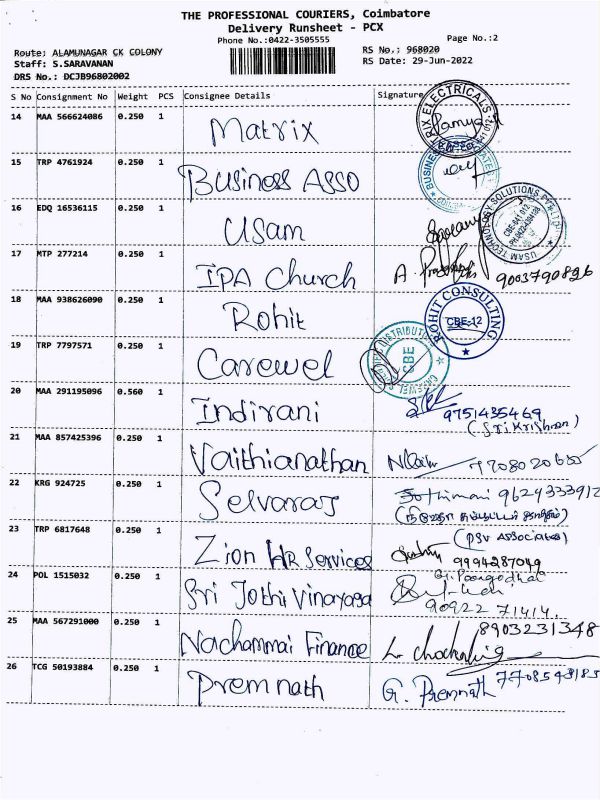 THE PROFESSIONAL COURIERS, Coimbatore
Delivery Runsheet - PCX
Phone No.:0422-3505555
Page No.:2
Route; ALAMUNAGAR CK COLONY
Staff: S.SARAVANAN
DRS No.: DCJB96802002
RS No.; 968020
RS Date: 29-Jun-2022
S No Consignment No Weight PCS Consignee Details Signature
14 MAA 566624086 0.250 1 Matrix
15 TRP 4761924 0.250 1 Business Asso
16 EDQ 16536115 0.250 1 Usam
USAM TECHNOLOGY SOLUTIONS
17 MTP 277214 0.250 1 IPA Church 9003790896
18 MAA 938626090 0.250 1 Rohit
ROHIT CONSULTING
CBE-12
19 TRP 7797571 0.250 1 Carewel
CBE
20 MAA 291195096 0.560 1 Indirani 9751435469
(Sri Krishnan)
21 MAA 857425396 0.250 1 Vaithianathan
22 KRG 924725 0.250 1 Selvaraj Jothimani 9629333912
23 TRP 6817648 0.250 1 Zion HR Services (PSV Associates)
9994287049
24 POL 1515032 0.250 1 Sri Jothi Vinayaga
90922 71414.
25 MAA 567291000 0.250 1 Nachammai Finance 8903231348
26 TCG 50193884 0.250 1 Premnath G. Premnath